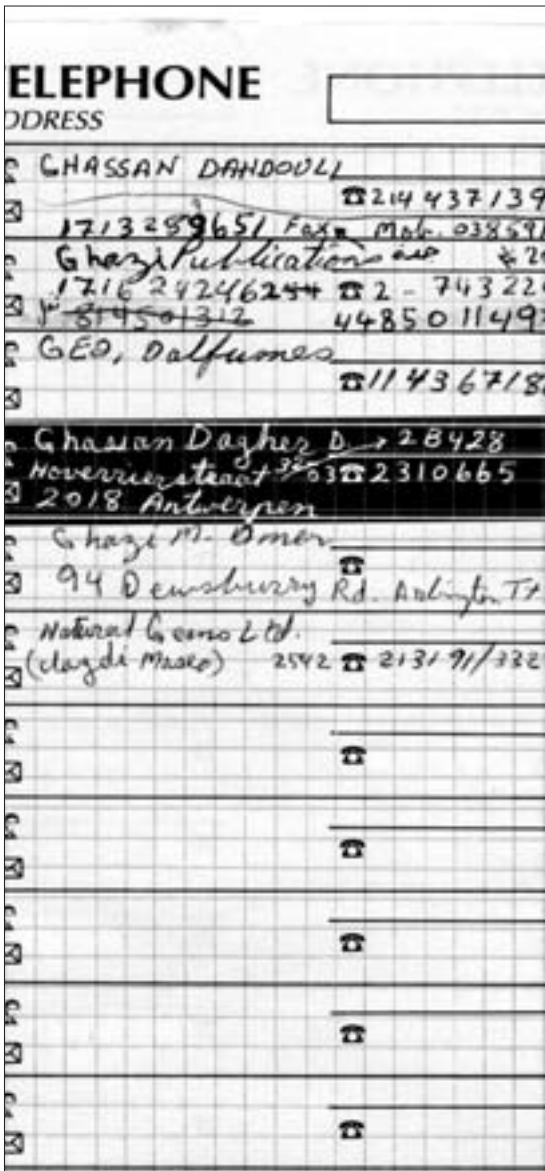 ELEPHONE
DDRESS
GHASSAN DAHDOULI
214 437139
1713289651 Fax Mob. 038591
Ghazi Publications
17162424 2 - 743220
814501312 448501149
GEO, Dalfumes
11436718
Ghassan Dagher D → 28428
Hoverrierstraat 32 03 2310665
2018 Antwerpen
Ghazi M. Omer
94 Dewsburry Rd. Arlington TX
Natural Gems Ltd.
2542 213191/332